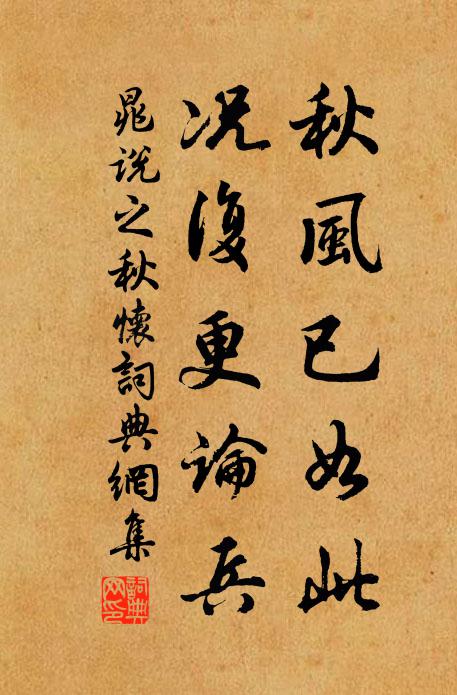 秋風已如此
況復更論兵
晁説之秋懷詞典網集
詞典網印